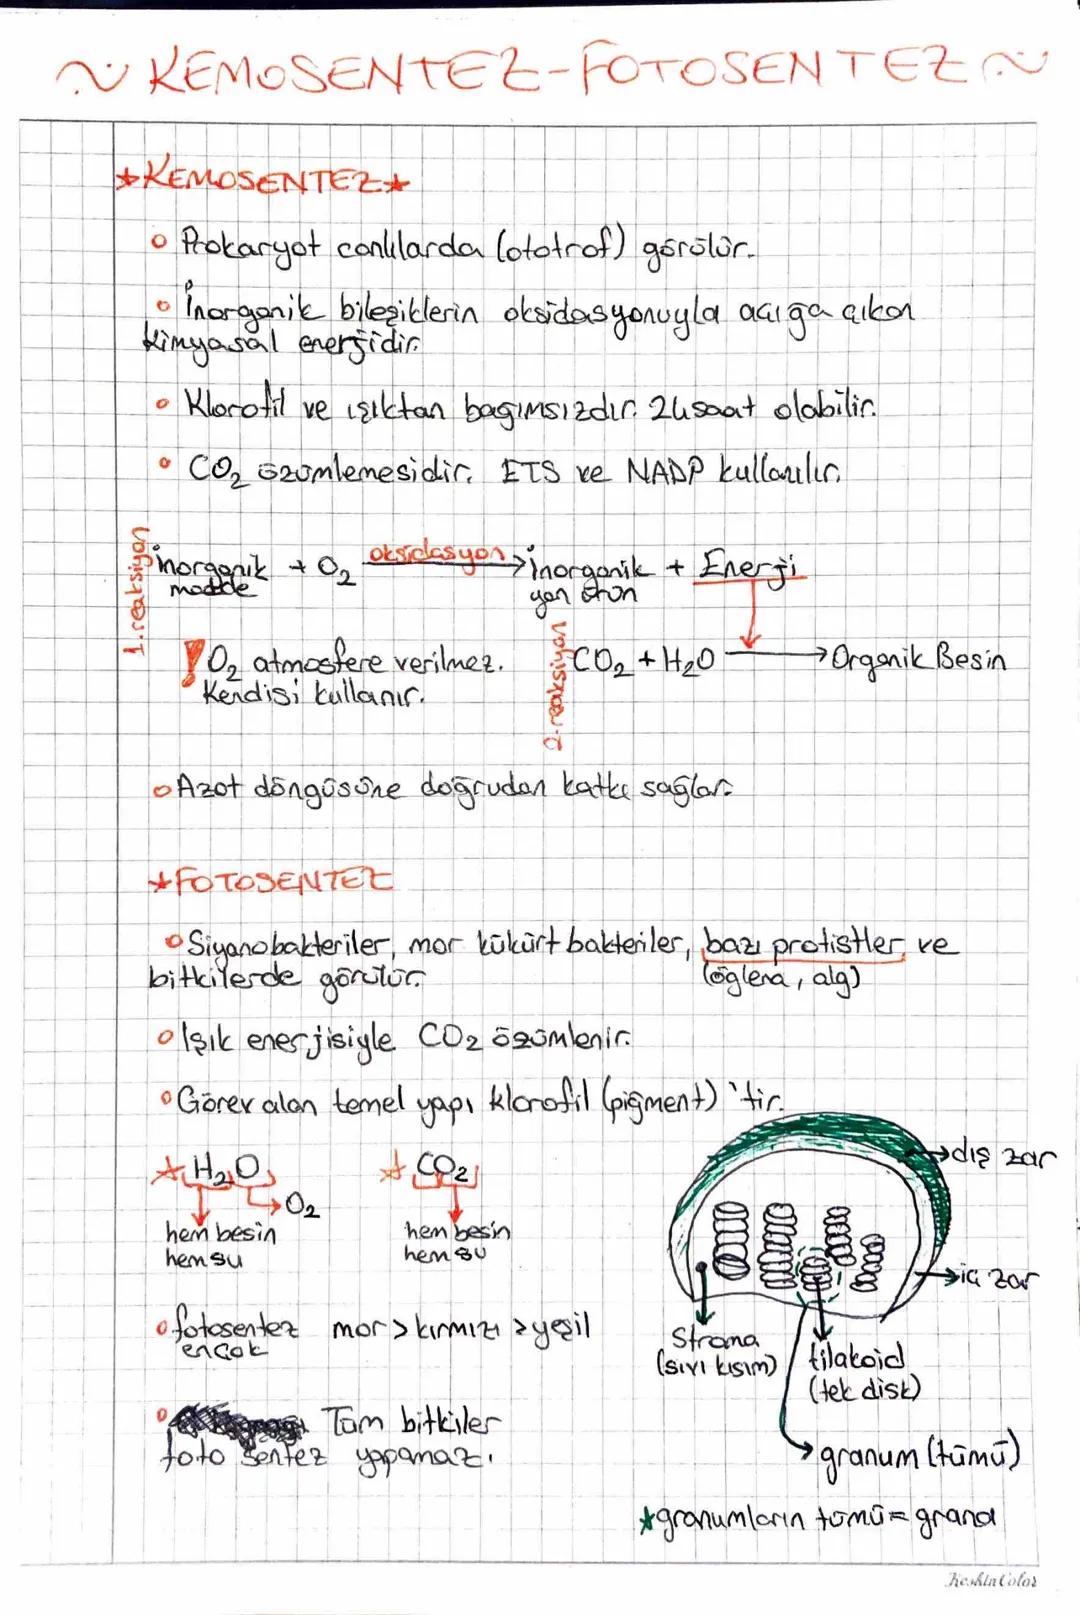 KEMOSENTEZ-FOTOSENTEZ
KEMOSENTEZ
Prokaryot canlılarda (ototrof) görülür.
İnorganik bileşiklerin oksidasyonuyla açığa çıkan
kimyasal enerjidir.
Klorofil ve ışıktan bağımsızdır. 24 saat olabilir.
CO2 özümlemesidir. ETS ve NADP kullanılır.
1. reaksiyon
inorganik + O2 oksidasyon → inorganik + Enerji
madde yan ürün
! O2 atmosfere verilmez.
Kendisi kullanır.
2. reaksiyon
CO2 + H2O → Organik Besin
Azot döngüsüne doğrudan katkı sağlar.
FOTOSENTEZ
Siyanobakteriler, mor kükürt bakteriler, bazı protistler ve
bitkilerde görülür. (öglena, alg)
Işık enerjisiyle CO2 özümlenir.
Görev alan temel yapı klorofil (pigment) 'tir.
H2O → O2
hem besin
hem su
CO2
hem besin
hem su
fotosentez mor > kırmızı > yeşil
en çok
Tüm bitkiler
fotosentez yapamaz.
dış zar
iç zar
Stroma
(sıvı kısım)
tilakoid
(tek disk)
granum (tümü)
granumların tümü = grana
KeskinColor